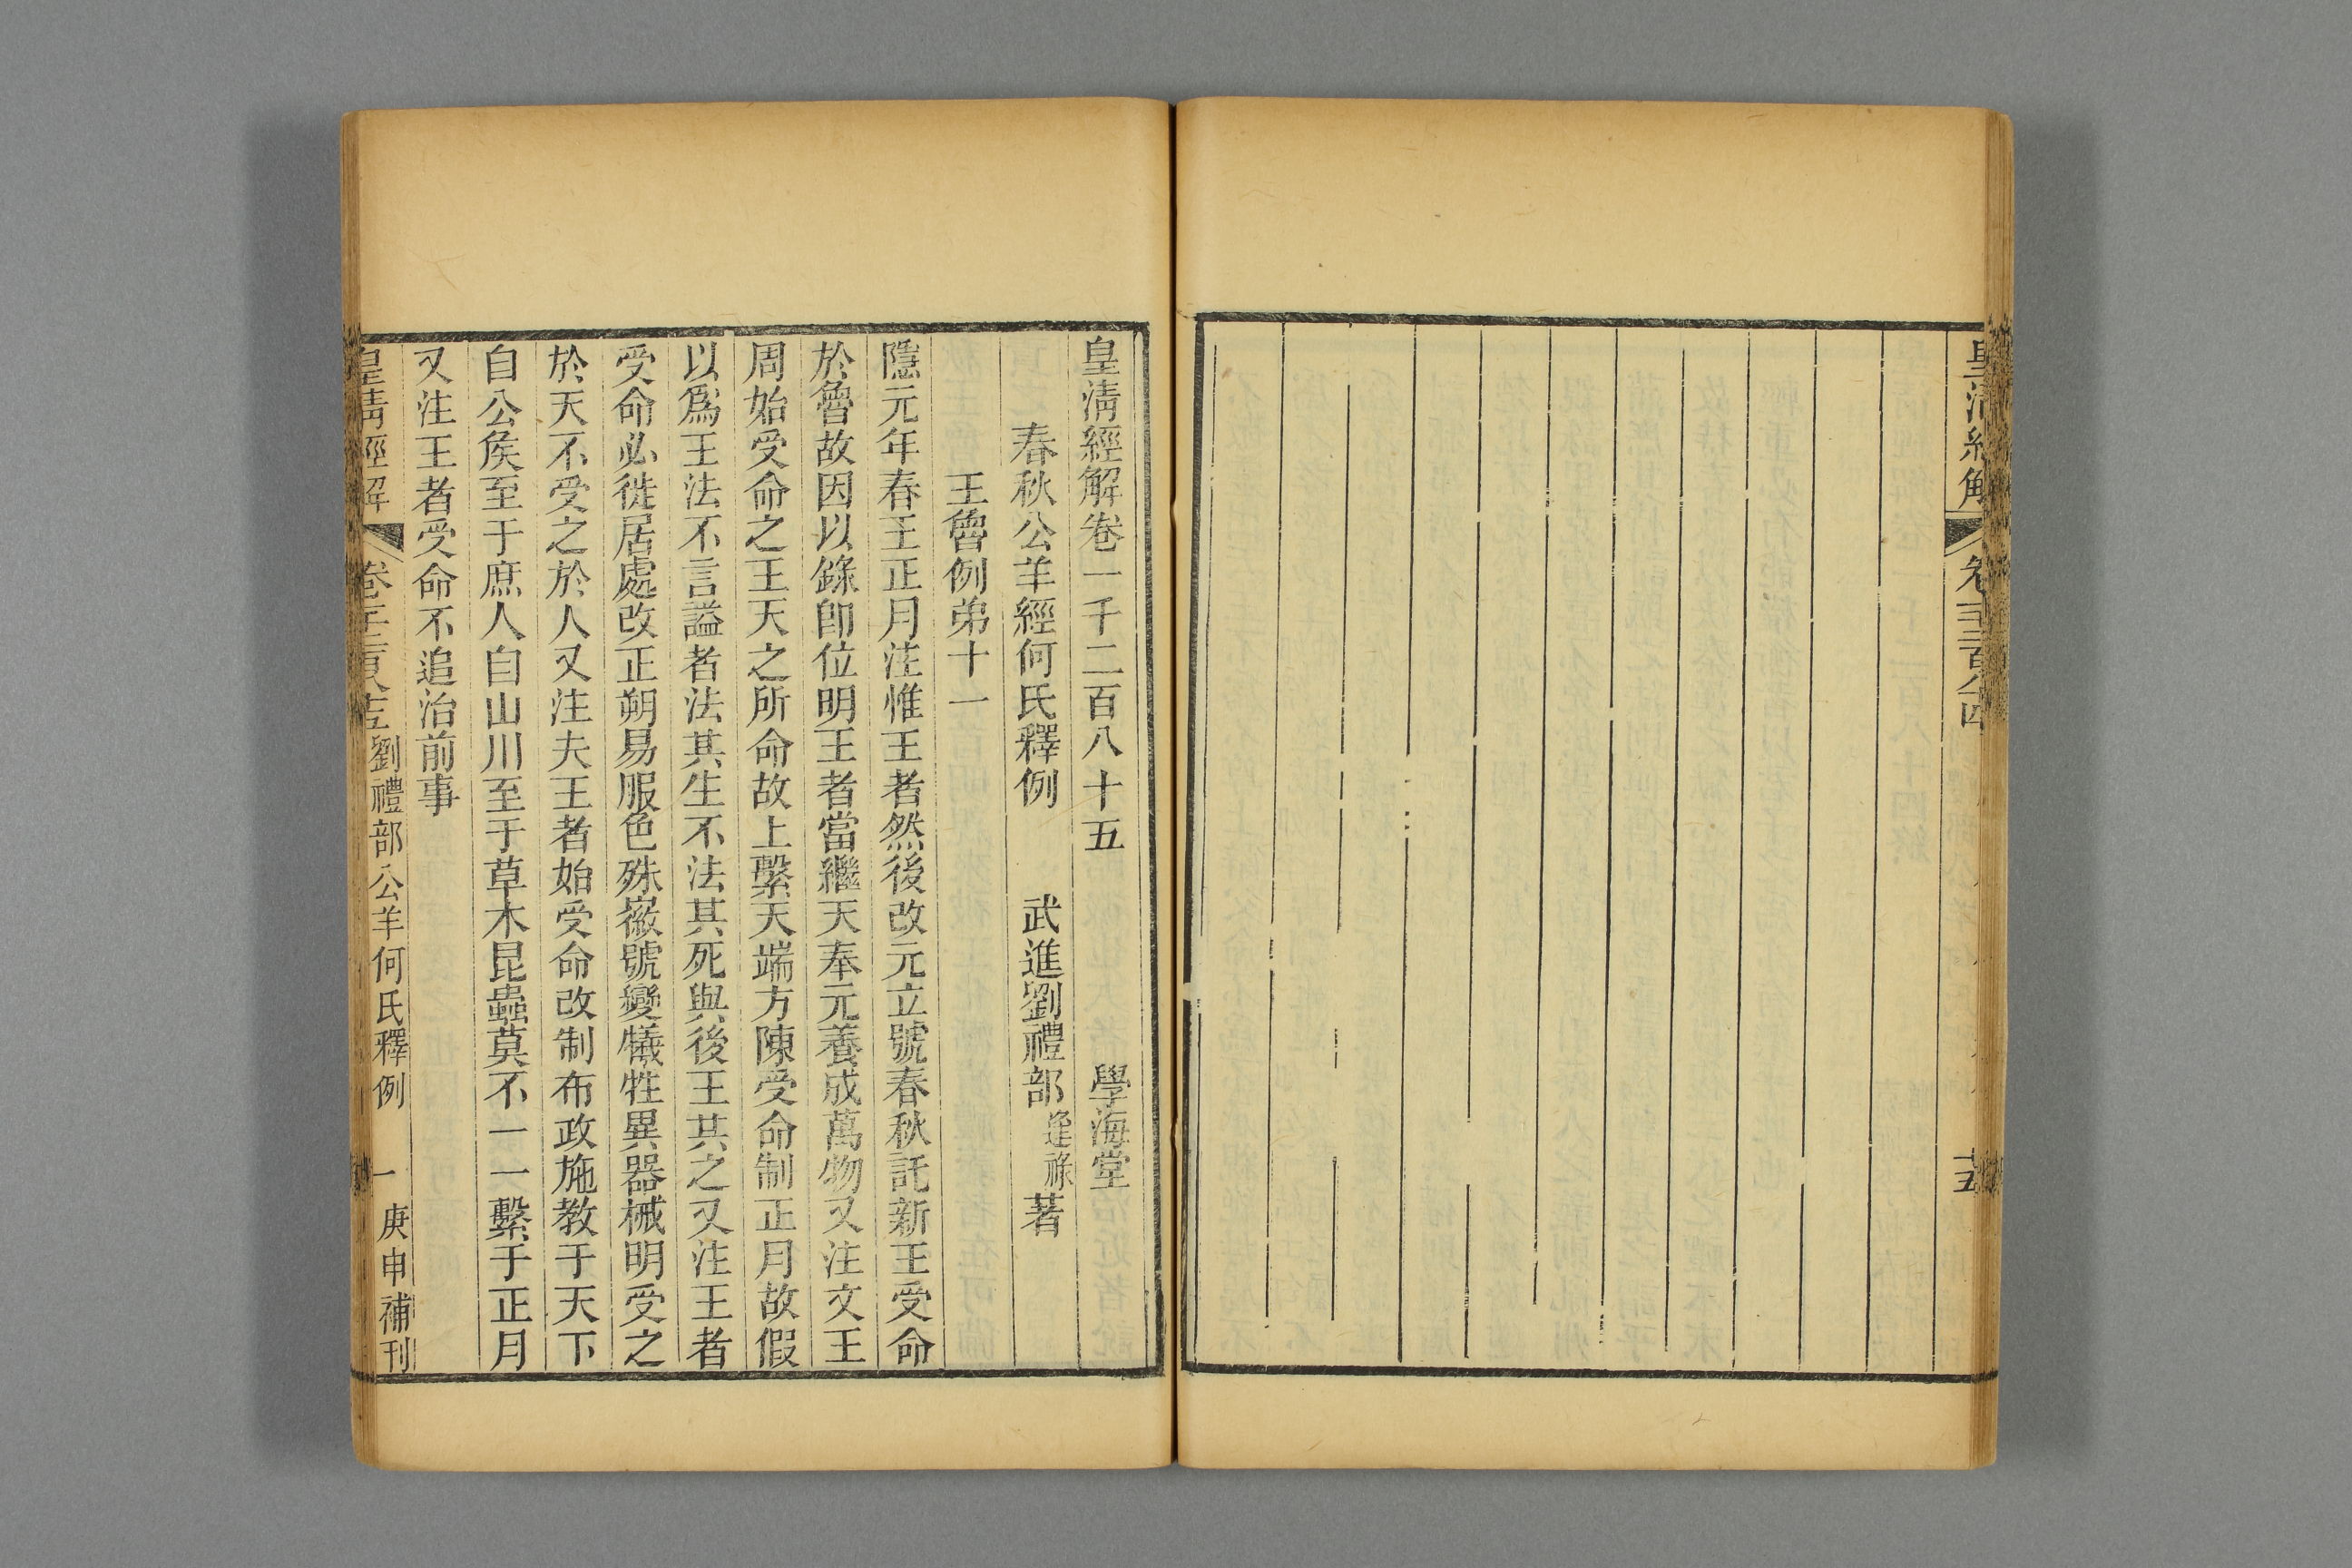 皇清經解
卷千二百八十四
十五
皇清經解卷一千二百八十五 學海堂
春秋公羊經何氏釋例 武進劉禮部逢祿著
王魯例弟十一
隱元年春王正月注惟王者然後改元立號春秋託新王受命
於魯故因以錄卽位明王者當繼天奉元養成萬物又注文王
周始受命之王天之所命故上繫天端方陳受命制正月故假
以爲王法不言謚者法其生不法其死與後王共之又注王者
受命必徙居處改正朔易服色殊徽號變犧牲異器械明受之
於天不受之於人又注夫王者始受命改制布政施教于天下
自公侯至于庶人自山川至于草木昆蟲莫不一一繫于正月
又注王者受命不追治前事
皇清經解 卷千二百八十五 劉禮部公羊何氏釋例 一 庚申補刊